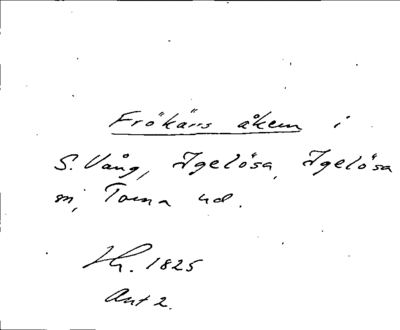 Frökärrs åkern i
S. Vång, Igelösa, Igelösa
sn, Torna hd.
Hr. 1825
Akt 2.